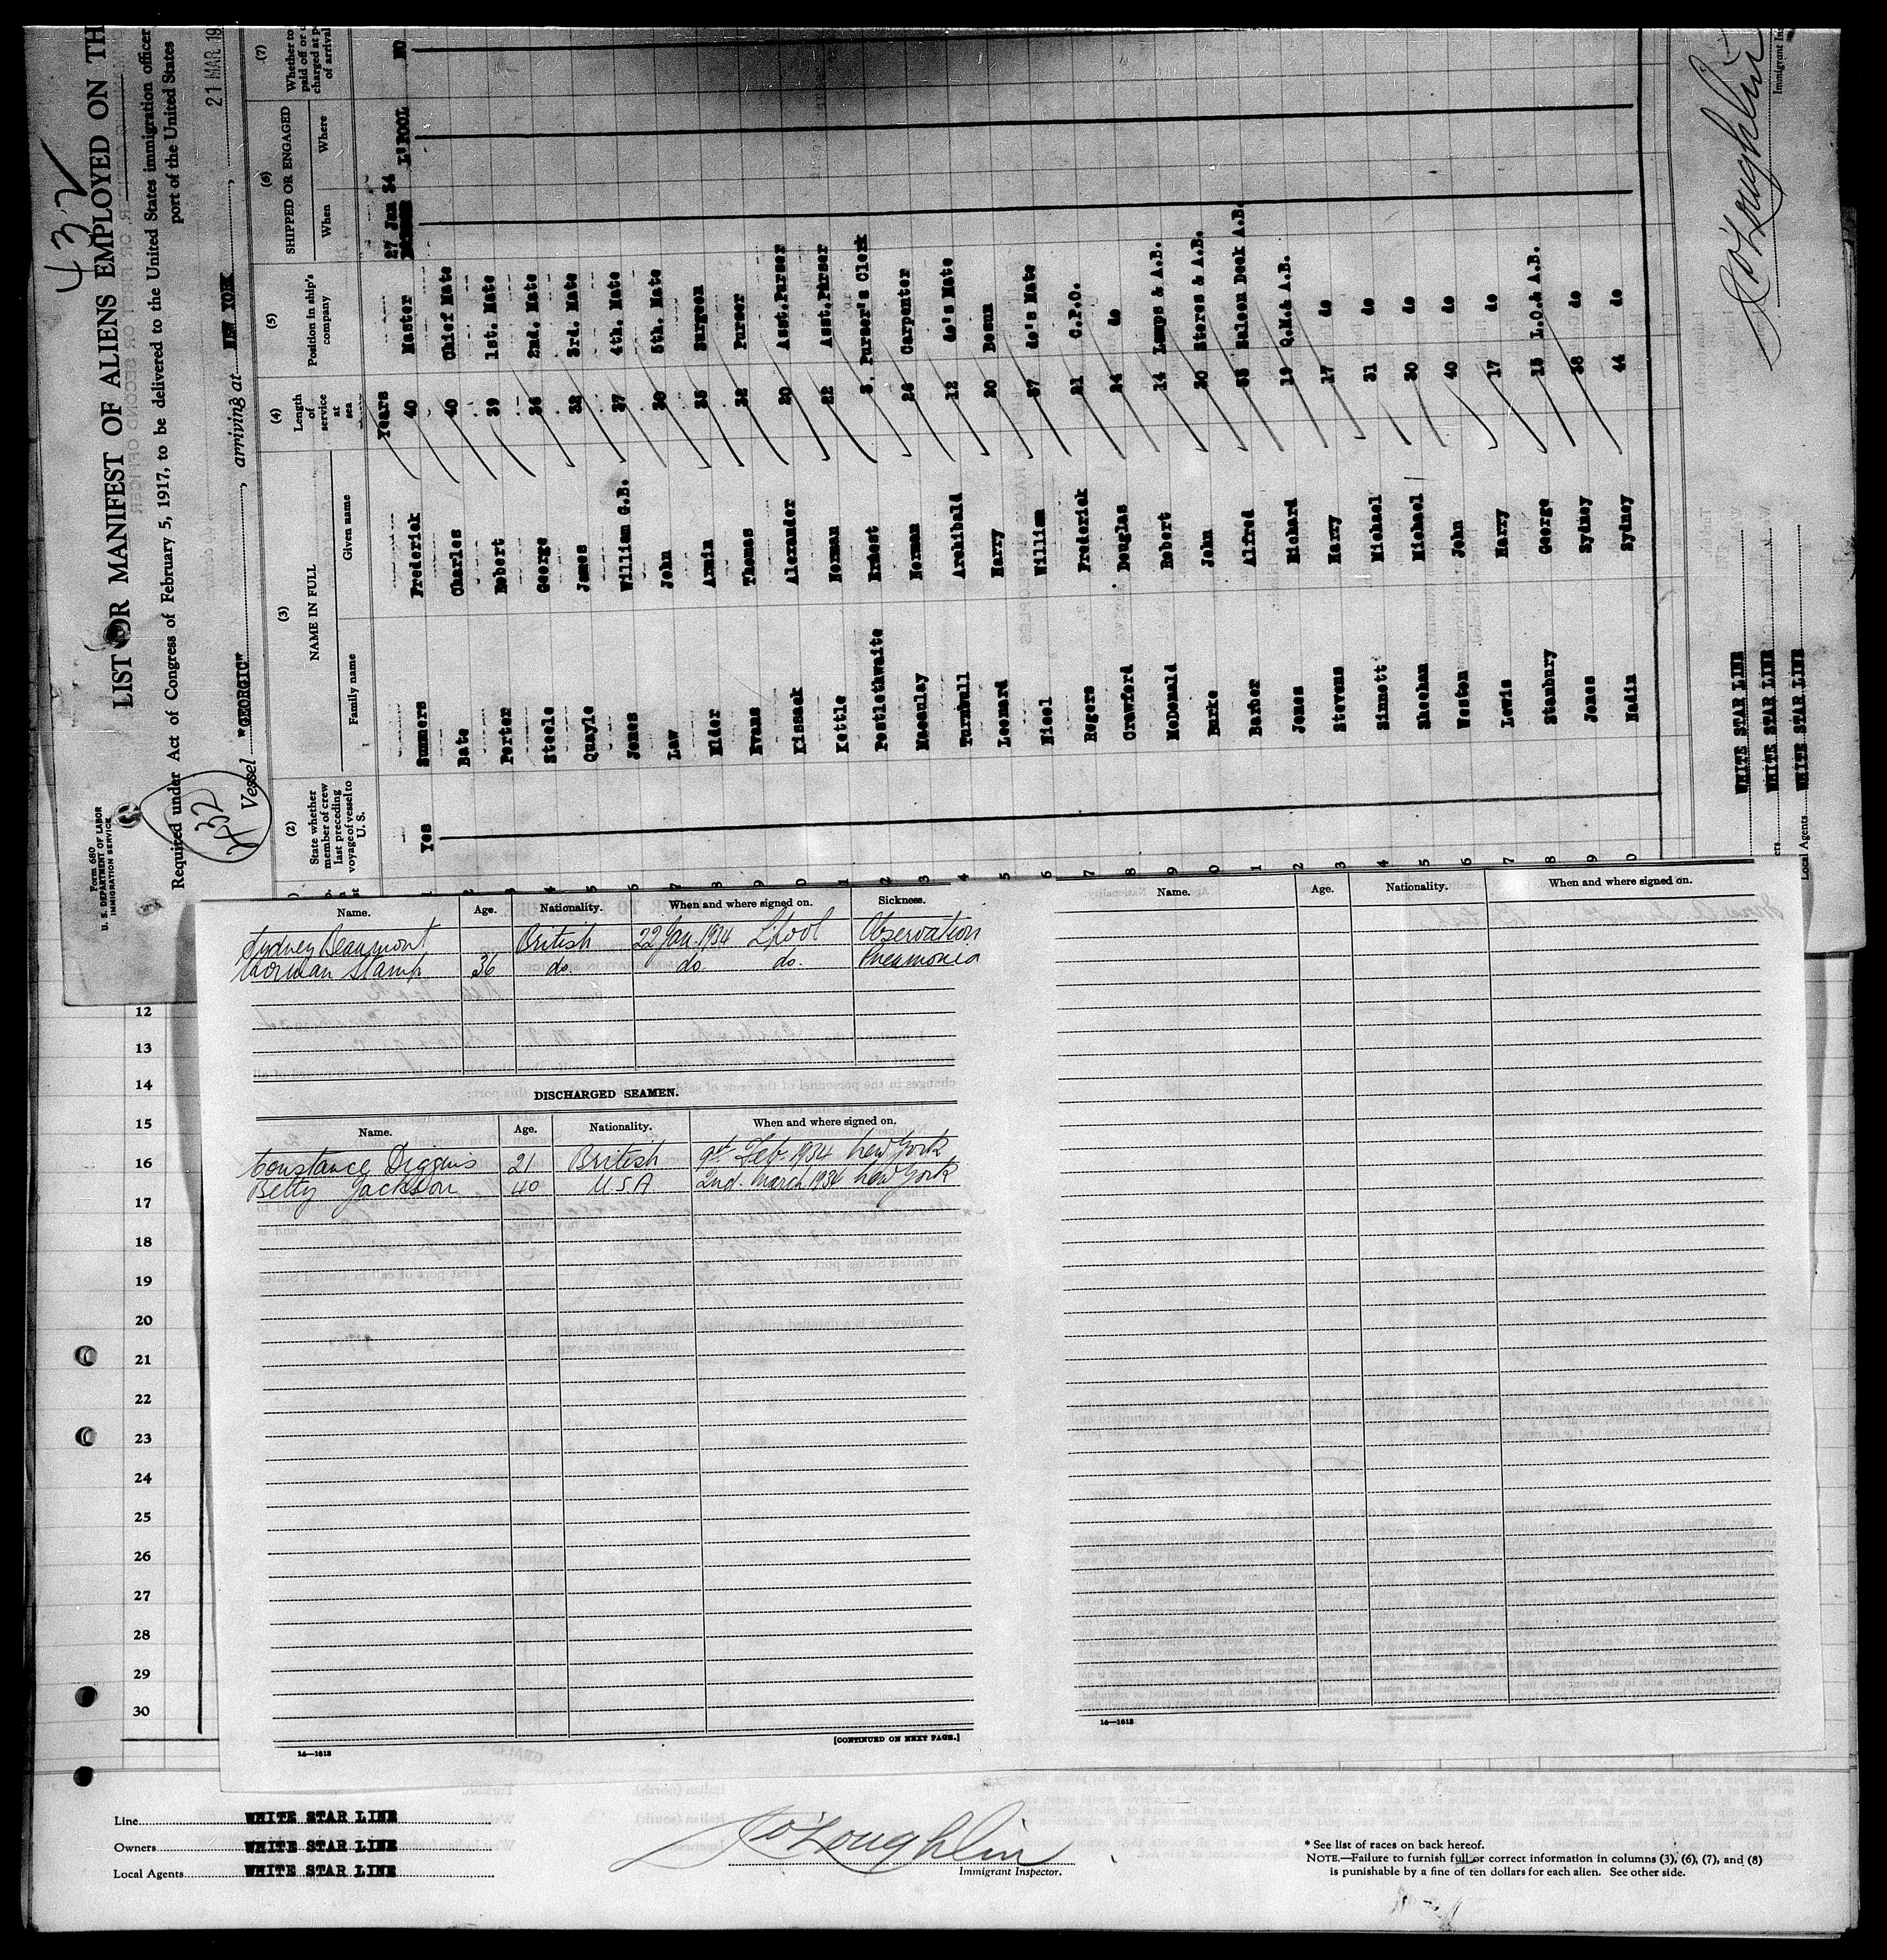 432
Form 680
U. S. DEPARTMENT OF LABOR
IMMIGRATION SERVICE
LIST OR MANIFEST OF ALIENS EMPLOYED ON TH
Required under Act of Congress of February 5, 1917, to be delivered to the United States immigration officer
port of the United States
432
Vessel "GEORGIC", arriving at NEW YORK, 21 MAR 19
(2) (3) (4) (5) (6) (7)
State whether member of crew last preceding voyage of vessel to U. S.
NAME IN FULL
Family name Given name
Length of service at sea
Position in ship's company
SHIPPED OR ENGAGED
When Where
Whether to
paid off or
charged at p
of arrival
Years 27 Jan 34
1 Yes Summers Frederick 40 Master L'POOL NO
2 Bate Charles 40 Chief Mate
3 Porter Robert 39 1st. Mate
4 Steele George 36 2nd. Mate
5 Quayle James 32 3rd. Mate
6 Jones William G.B. 27 4th. Mate
7 Law John 30 5th. Mate
8 Elder Armin 35 Surgeon
9 Evans Thomas 32 Purser
0 Kissack Alexander 20 Asst.Purser
1 Kettle Norman 22 Asst.Purser
2 Postlethwaite Ernest 3. Purser's Clerk
3 Macaulay Norman 26 Carpenter
4 Turnbull Archibald 12 do's Mate
5 Leonard Harry 20 Bosun
6 Nicol William 37 do's Mate
7 Rogers Frederick 21 C.P.O.
8 Crawford Douglas 24 do
9 McDonald Robert 14 Lamps & A.B.
0 Burke John 20 Stores & A.B.
1 Barber Alfred 35 Saloon Deck A.B.
2 Jones Richard 19 Q.M.& A.B.
3 Stevens Harry 17 do
4 Sinnett Michael 31 do
5 Sheehan Michael 30 do
6 Weston John 40 do
7 Lewis Harry 17 do
8 Stanbury George 15 L.O.& A.B.
9 Jones Sydney 38 do
0 Nadin Sydney 44 do
WHITE STAR LINE
ers WHITE STAR LINE
Local Agents WHITE STAR LINE
O'Loughlin
Immigrant In
Name. Age. Nationality. When and where signed on. Sickness.
Sydney Beaumont British 22 Jan. 1934 L'pool Observation
Norman Stamp 36 do. do. do. Pneumonia
DISCHARGED SEAMEN.
Name. Age. Nationality. When and where signed on.
Constance Diggins 21 British 9th Feb. 1934 New York
Betty Jackson 40 U.S.A 2nd. March 1934 New York
[CONTINUED ON NEXT PAGE.]
14—1618
Name. Age. Nationality. When and where signed on.
14—1618
12
13
14
15
16
17
18
19
20
21
22
23
24
25
26
27
28
29
30
Line WHITE STAR LINE
Owners WHITE STAR LINE
Local Agents WHITE STAR LINE
O'Loughlin
Immigrant Inspector.
* See list of races on back hereof.
NOTE.—Failure to furnish full or correct information in columns (3), (6), (7), and (8)
is punishable by a fine of ten dollars for each alien. See other side.